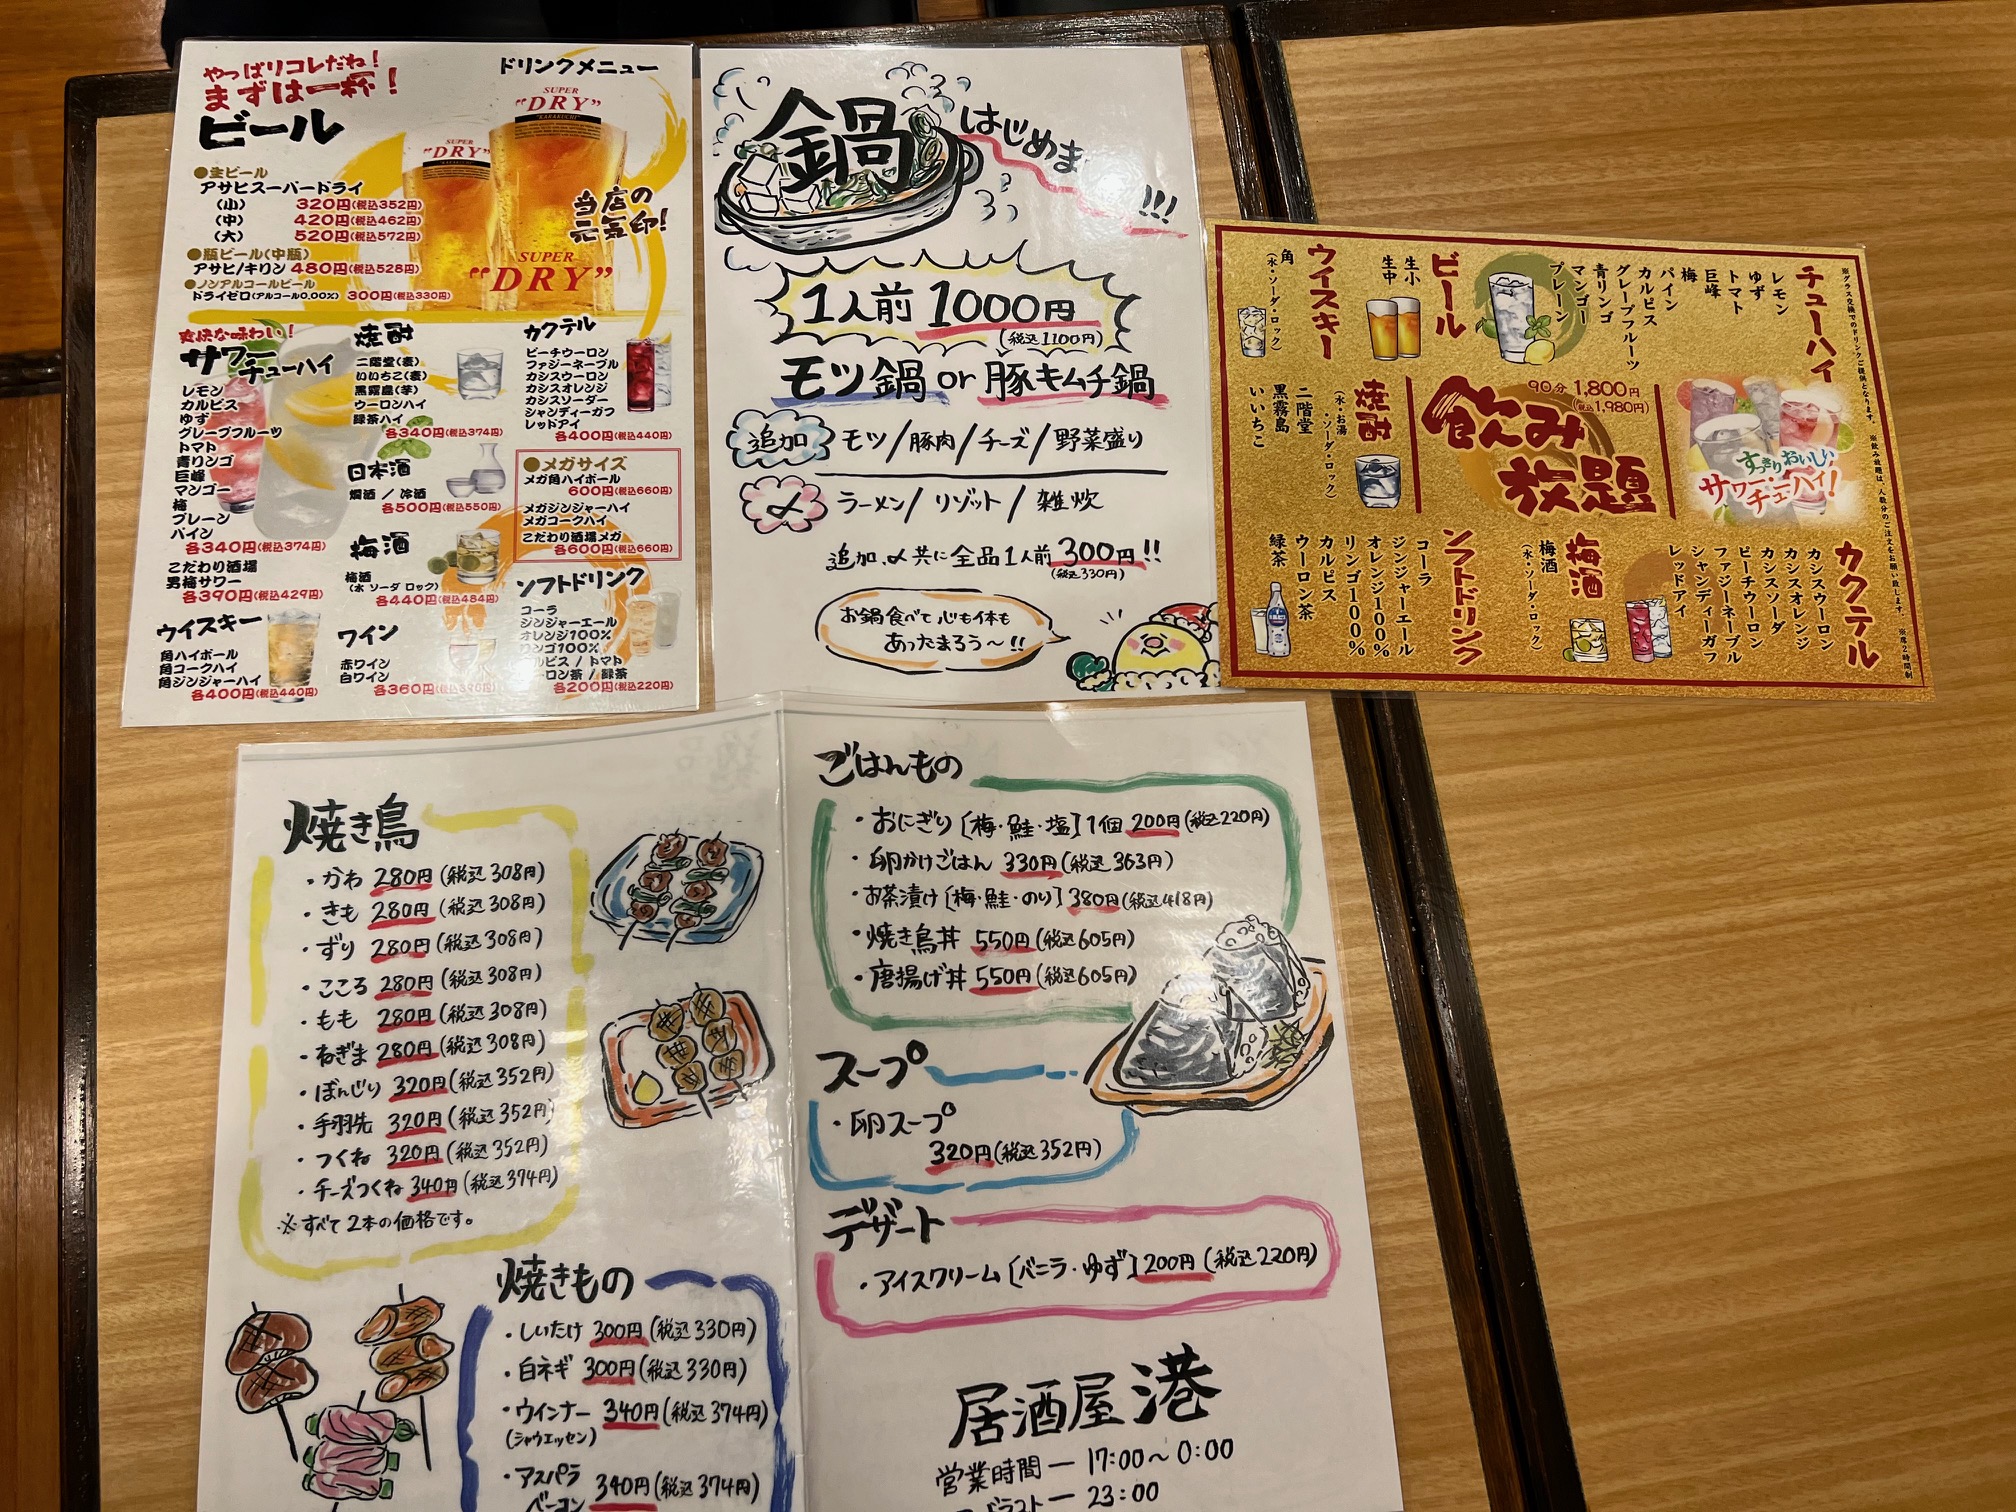 ドリンクメニュー
やっぱりコレだね!
まずは一杯!
ビール
●生ビール
アサヒスーパードライ
(小) 320円(税込352円)
(中) 420円(税込462円)
(大) 520円(税込572円)
●瓶ビール(中瓶)
アサヒ/キリン 480円(税込528円)
●ノンアルコールビール
ドライゼロ(アルコール0.00%) 300円(税込330円)
SUPER
"DRY"
SUPER
"DRY"
SUPER
"DRY"
当店の
一番印!
爽快な味わい!
サワー
チューハイ
レモン
カルピス
ゆず
グレープフルーツ
トマト
青リンゴ
巨峰
マンゴー
梅
プレーン
パイン
各340円(税込374円)
こだわり酒場
男梅サワー
各390円(税込429円)
ウイスキー
角ハイボール
角コークハイ
角ジンジャーハイ
各400円(税込440円)
焼酎
二階堂(麦)
いいちこ(麦)
黒霧島(芋)
ウーロンハイ
緑茶ハイ
各340円(税込374円)
日本酒
燗酒/冷酒
各500円(税込550円)
梅酒
梅酒
(水 ソーダ ロック)
各440円(税込484円)
ワイン
赤ワイン
白ワイン
各360円(税込390円)
カクテル
ピーチウーロン
ファジーネーブル
カシスウーロン
カシスオレンジ
カシスソーダー
シャンディーガフ
レッドアイ
各400円(税込440円)
●メガサイズ
メガ角ハイボール
600円(税込660円)
メガジンジャーハイ
メガコークハイ
こだわり酒場メガ
各600円(税込660円)
ソフトドリンク
コーラ
ジンジャーエール
オレンジ100%
リンゴ100%
カルピス / トマト
ウーロン茶 / 緑茶
各200円(税込220円)
鍋はじめま
!!!
1人前1000円
(税込1100円)
モツ鍋 or 豚キムチ鍋
追加 モツ/豚肉/チーズ/野菜盛り
〆 ラーメン/リゾット/雑炊
追加、〆共に全品1人前 300円!!
(税込330円)
お鍋食べて心も体も
あったまろう〜!!
焼き鳥
・かわ 280円(税込308円)
・きも 280円(税込308円)
・ずり 280円(税込308円)
・こころ 280円(税込308円)
・もも 280円(税込308円)
・ねぎま 280円(税込308円)
・ぼんじり 320円(税込352円)
・手羽先 320円(税込352円)
・つくね 320円(税込352円)
・チーズつくね 340円(税込374円)
※すべて2本の価格です。
焼きもの
・しいたけ 300円(税込330円)
・白ネギ 300円(税込330円)
・ウインナー 340円(税込374円)
(シャウエッセン)
・アスパラ
ベーコン 340円(税込374円)
ごはんもの
・おにぎり[梅・鮭・塩]1個 200円(税込220円)
・卵かけごはん 330円(税込363円)
・お茶漬け[梅・鮭・のり]380円(税込418円)
・焼き鳥丼 550円(税込605円)
・唐揚げ丼 550円(税込605円)
スープ
・卵スープ
320円(税込352円)
デザート
・アイスクリーム[バニラ・ゆず]200円(税込220円)
居酒屋 港
営業時間 ― 17:00〜0:00
23:00
飲み放題
90分 1,800円
(税込1,980円)
すっきりおいしい
サワー・チューハイ!
チューハイ
レモン
ゆず
トマト
巨峰
梅
パイン
カルピス
グレープフルーツ
青リンゴ
マンゴー
プレーン
ビール
生小
生中
ウイスキー
角
(水・ソーダ・ロック)
焼酎
(水・お湯・ソーダ・ロック)
二階堂
黒霧島
いいちこ
カクテル
カシスウーロン
カシスオレンジ
カシスソーダ
ピーチウーロン
ファジーネーブル
シャンディーガフ
レッドアイ
梅酒
梅酒
(水・ソーダ・ロック)
ソフトドリンク
コーラ
ジンジャーエール
オレンジ100%
リンゴ100%
カルピス
ウーロン茶
緑茶
※グラス交換でのドリンクご提供となります。
※飲み放題は、人数分のご注文をお願い致します。
※席2時間制